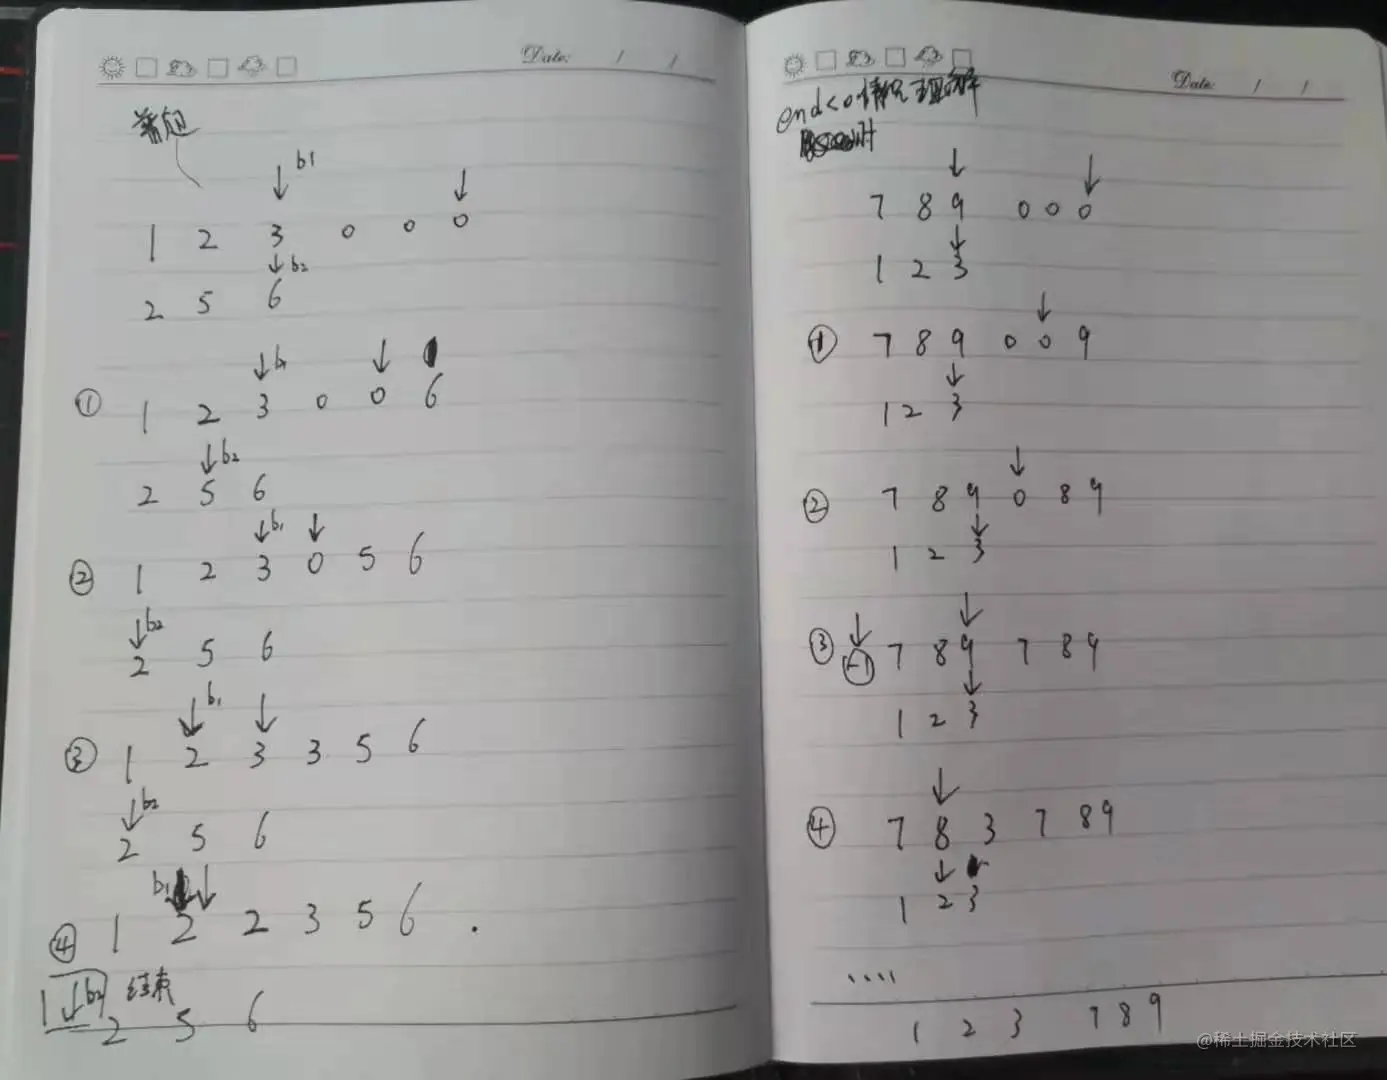 Date: / /
普通
b1
1 2 3 0 0 0
b2
2 5 6
b1
① 1 2 3 0 0 6
b2
2 5 6
b1
② 1 2 3 0 5 6
b2
2 5 6
b1
③ 1 2 3 3 5 6
b2
2 5 6
b1
④ 1 2 2 3 5 6 .
1 b2 结束
2 5 6
Date: / /
end<0情况理解
7 8 9 0 0 0
1 2 3
① 7 8 9 0 0 9
1 2 3
② 7 8 9 0 8 9
1 2 3
③ -1 7 8 9 7 8 9
1 2 3
④ 7 8 3 7 8 9
1 2 3
....
1 2 3 7 8 9
@稀土掘金技术社区